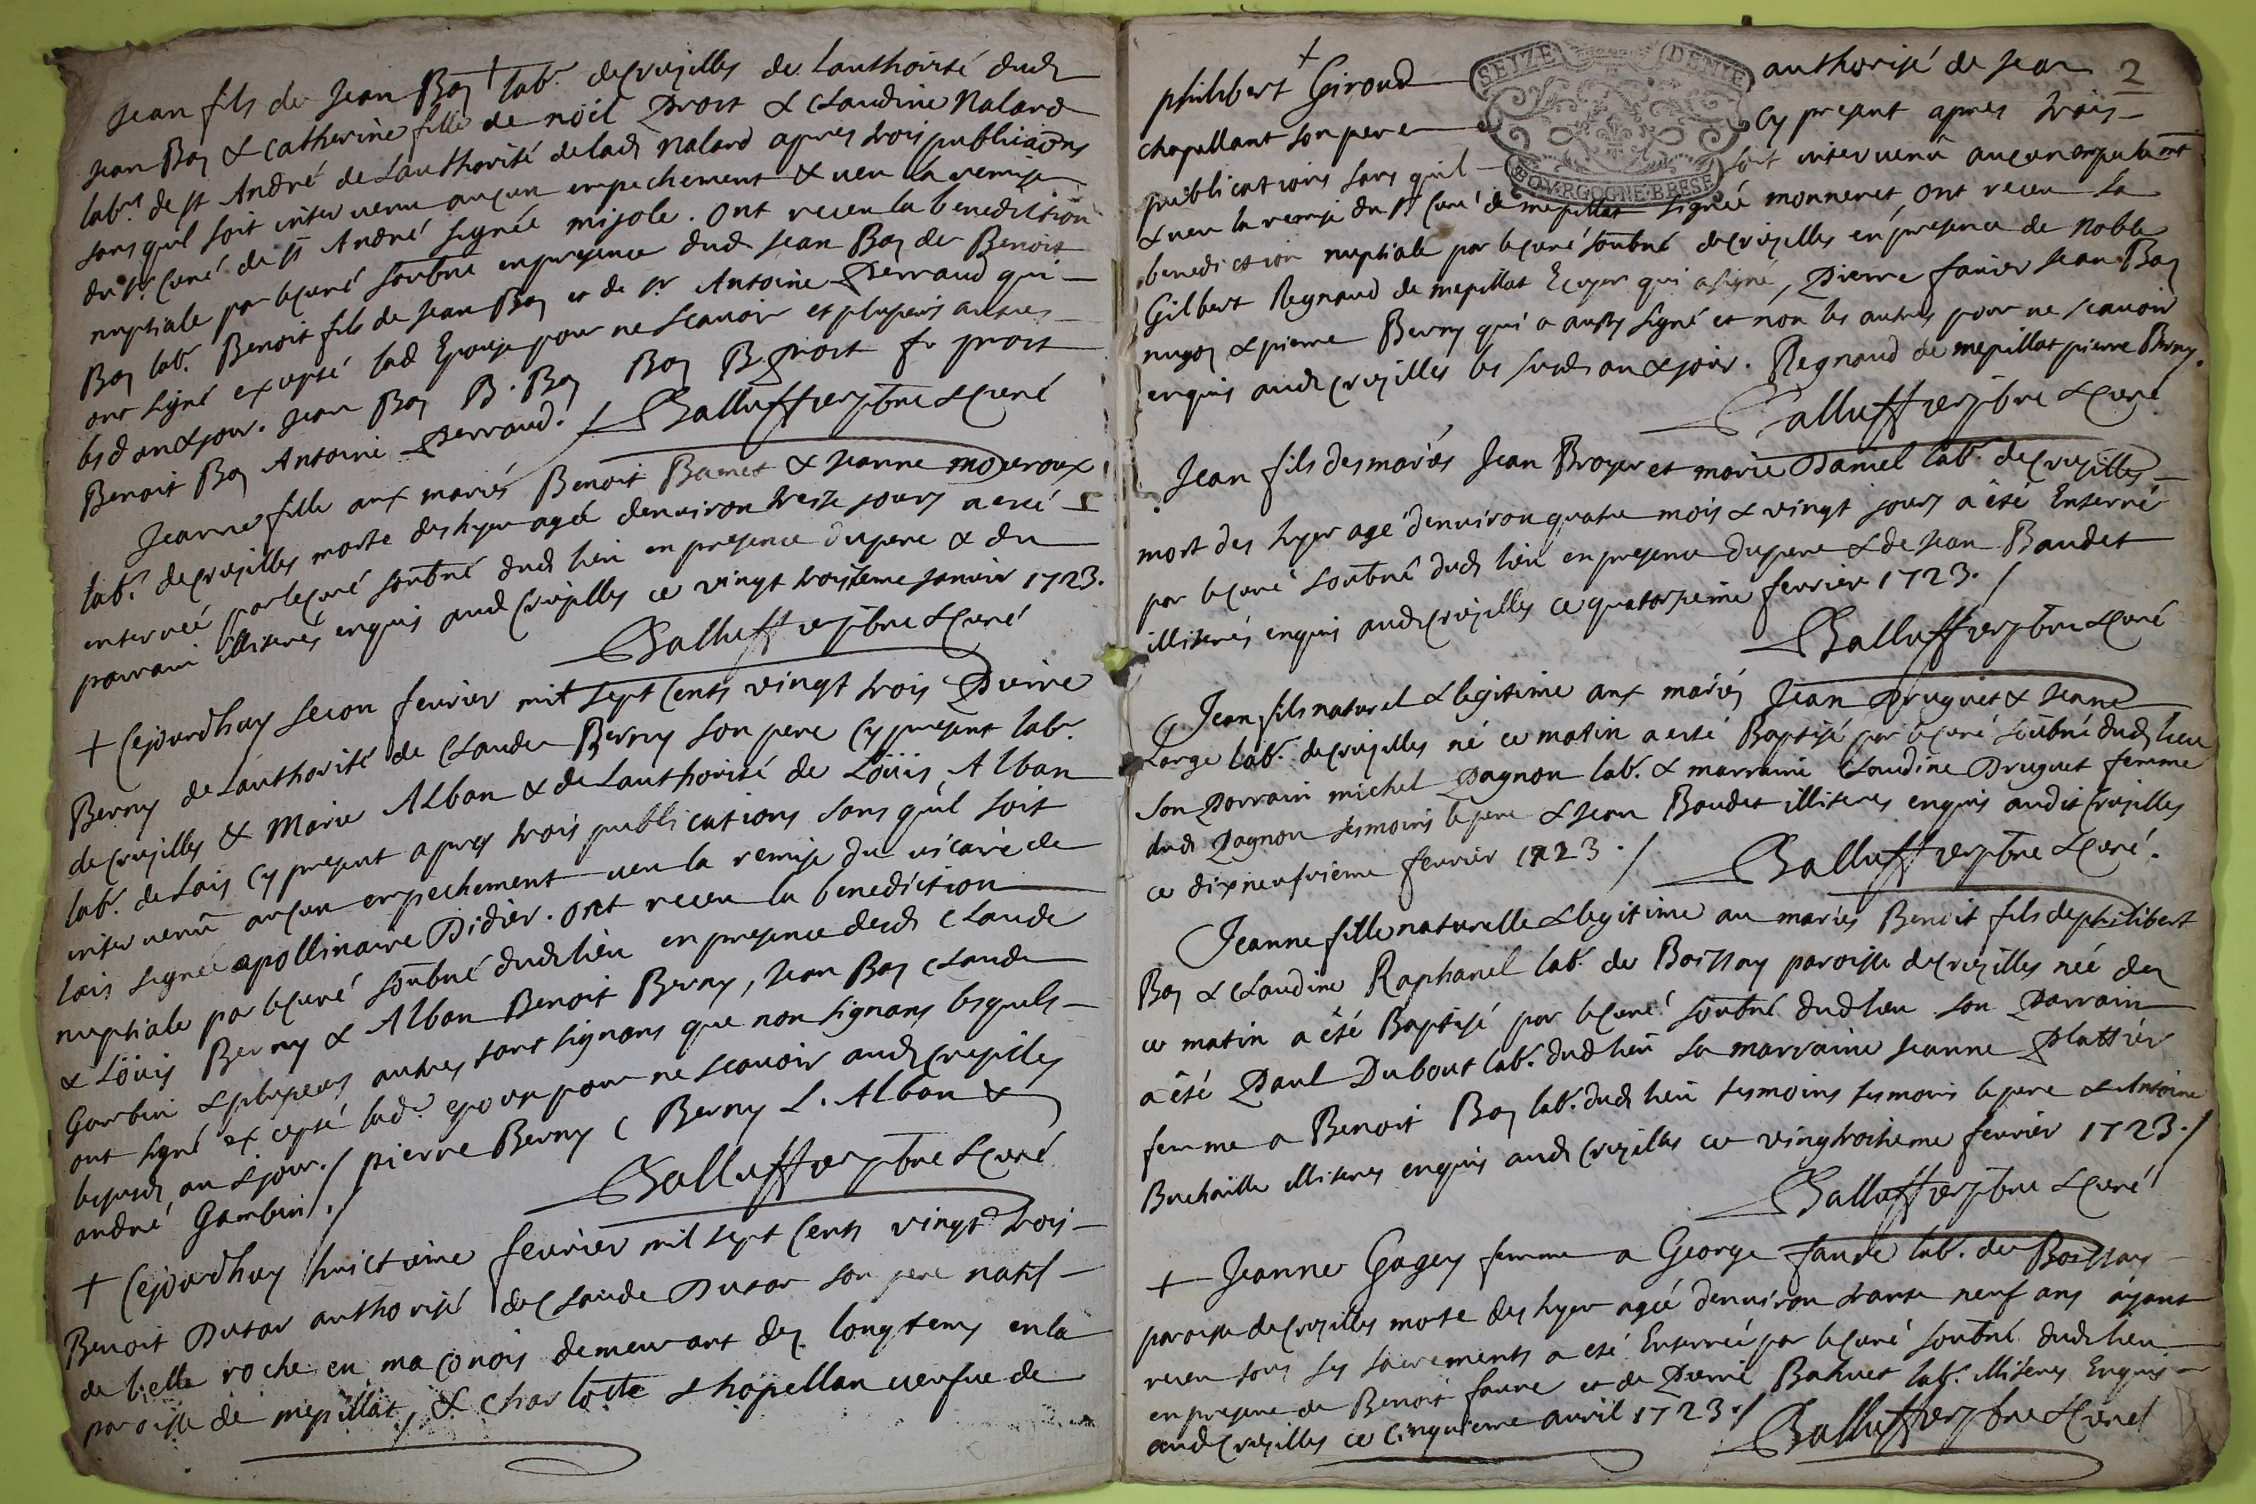 Jean fils de Jean Boy + lab.r de Crusilles de Lauthorité dud
Jean Boy & Catherine fille de noël Prost & Claudine Nalard
lab.rs de st André de Lauthorité de lad Nalard apres trois publicaons
sans quil soit intervenu aucun empechement & veu la remise
du sr Curé de st André signée mizole. ont receu la benediction
nuptiale par le curé soubne en presence dud Jean Boy de Benoist
Boy lab.r Benoit fils de Jean Boy et de sr Antoine Perraud qui
ont signé excepté lad Epouse pour ne scavoir et plusieurs autres
les d an & jour. Jean Boy B. Boy Boy B prost fr prost
Benoit Boy Antoine Perraud. / Balluffier pbre & Curé
Jeanne fille aux mariés Benoit & Jeanne moveroux
lab.r de Crusilles morte des hyer agée denviron treize jours a eté
enterrée par le curé soubné dud lieu en presence du pere & du
parrain illiterés enquis aud Crusilles ce vingt troisieme janvier 1723.
Balluffier pbre & Curé
+ Cejourdhuy secon fevrier mil sept cents vingt trois Pierre
Berny de Lauthorité de Claude Berny son pere cy present lab.r
de Crusilles & Marie Alban & de Lauthorité de Loüis Alban
lab.r de Lais cy present apres trois publications sans quil soit
intervenu aucun empechement veu la remise du vicaire de
lais signée apollinaire Didier. ont receu la benediction
nuptiale par le curé soubné dud lieu en presence desd Claude
& Loüis Berny & Alban Benoit Berny, Jean Boy Claude
Gambin & plusieurs autres tant signans que non signans lesquels
ont signé excepté lad.e epouse pour ne scavoir aud Crusilles
les susd an & jour. / pierre Berny C Berny L. Alban &
andré Gambin. / Balluffier pbre & Curé
+ Cejourdhuy huictieme fevrier mil sept cents vingt trois
Benoit Dutar authorisé de Claude Dutar son pere natif
de belle roche en maconois demeurant dez longtems en la
paroisse de mepillat, & Charlotte Chapellan veufve de
philibert + Giroud authorisé de Jean 2
chapellant son pere cy present apres trois
publications sans quil soit intervenu aucun empechemt
& veu la remise du sr Curé de mepillat signée monneret, ont receu la
benediction nuptiale par le curé soubné de Crusilles en presence de Noble
Gilbert Regnaud de mepillat Ecuyer qui a signé, Pierre favier Jean Boy
nugon & pierre Berny qui a aussy signé et non les autres pour ne scavoir
enquis aud Crusilles les susd an & jour. Regnaud de mepillat pierre Berny.
Balluffier pbre & Curé
Jean fils des mariés Jean Broyer et marie Daniel lab.r de Crusilles
mort des hyer age denviron quatre mois & vingt jours a été Enterré
par le curé soubné dud lieu en presence du pere & de Jean Baudet
illiterés enquis aud Crusilles ce quatorzieme fevrier 1723. /
Balluffier pbre & Curé
Jean fils naturel & legitime aux mariés Jean Druguet & Jeanne
Large lab.r de Crusilles né ce matin a esté Baptisé par le curé soubné dud lieu
son Parrain michel Pagnon lab.r & marraine Claudine Druguet femme
dud Pagnon tesmoins le pere & Jean Baudet illiteres enquis audit Crusilles
ce dixneufvieme fevrier 1723. / Balluffier pbre & Curé.
Jeanne fille naturelle & legitime au mariés Benoit fils de philibert
Boy & Claudine Raphanel lab.r de Boissay paroisse de Crusilles née dez
ce matin a été Baptisé par le curé soubné dud lieu son Parrain
a été Paul Dubout lab.r dud lieu sa marraine Jeanne Plattier
femme a Benoit Boy lab.r dud lieu tesmoins tesmoins le pere & Antoine
Buchaille illiteres enquis aud Crusilles ce vingtroisieme fevrier 1723. /
Balluffier pbre & Curé
+ Jeanne Gagey femme a George favre lab.r de Boissay
paroisse de Crusilles morte des hyer agée denviron trante neuf ans ayant
receu tous les sacrements a eté Enterrée par le curé soubné dud lieu
en presence de Benoit favre et de Pierre Bahuet lab.r illiteres Enquis
aud Crusilles ce Cinquieme avril 1723. / Balluffier pbre & Curé
SEIZE DENIE
BOVRGOGNE·BRESE